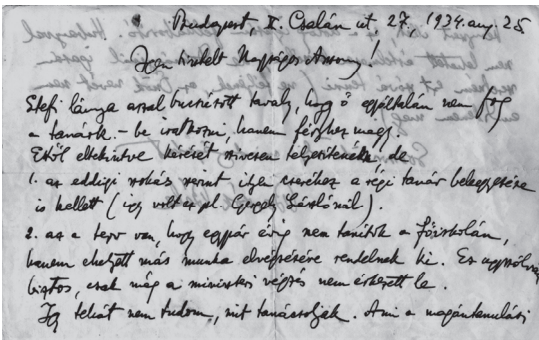 Budapest, II. Csalán út, 27, 1934. aug. 25
Igen tisztelt Nagyságos Asszony!
Stefi lánya azzal búcsúzott tavaly, hogy ő egyáltalán nem fog
a tanárk.-be iratkozni hanem férjhez megy.
Ettől eltekintve kérését szívesen teljesíteném, de
1. az eddigi szokás szerint ilyen cseréhez a régi tanár beleegyezése
is kellett (így volt ez pl. Gergely Lászlónál).
2. az a terv van, hogy egypár évig nem tanítok a főiskolán,
hanem ehelyett más munka elvégzésére rendelnek ki. Ez úgyszólván
biztos, csak még a miniszteri végzés nem érkezett le.
Így tehát nem tudom, mit tanácsoljak. Ami a magántanulási